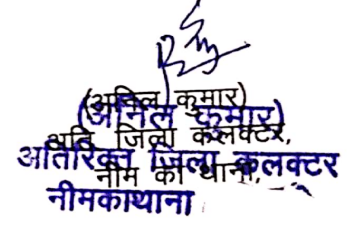 (अनिल कुमार)
(अनिल कुमार)
अति जिला कलक्टर,
अतिरिक्त जिला कलक्टर
नीम का थाना,
नीमकाथाना